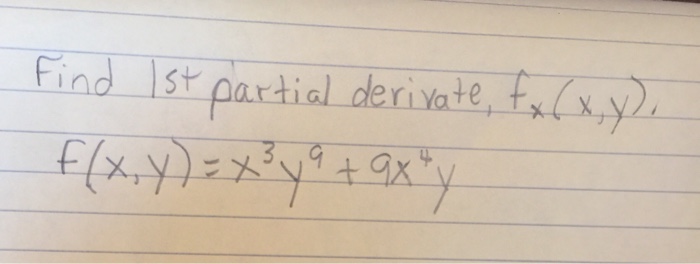 Find 1st partial derivate, fₓ(x,y).
f(x,y)=x³y⁹+9x⁴y